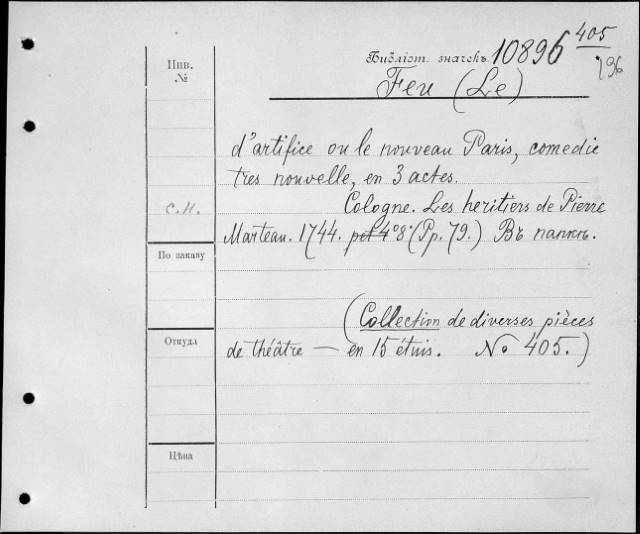 405
Инв.
№
Библіот. значекъ. 10896
/96
Feu (Le)
d'artifice ou le nouveau Paris, comedie
tres nouvelle, en 3 actes.
С.Н. Cologne. Les heritiers de Pierre
Marteau. 1744. pet 4° 8° (Pp. 79.) Въ папкѣ.
По заказу
(Collection de diverses pièces
Откуда de théâtre — en 15 étuis. No 405.)
Цѣна